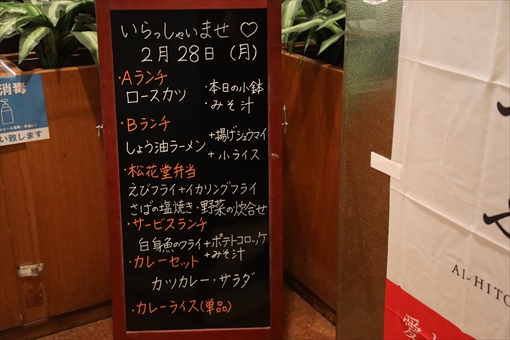 いらっしゃいませ ♡
2月28日(月)
・Aランチ
ロースカツ
・本日の小鉢
・みそ汁
・Bランチ
しょう油ラーメン
+揚げシュウマイ
+小ライス
・松花堂弁当
えびフライ+イカリングフライ
さばの塩焼き・野菜の炊合せ
・サービスランチ
白身魚のフライ+ポテトコロッケ
+みそ汁
・カレーセット
カツカレー・サラダ
・カレーライス(単品)
消毒
い致します
AI-HITO
愛